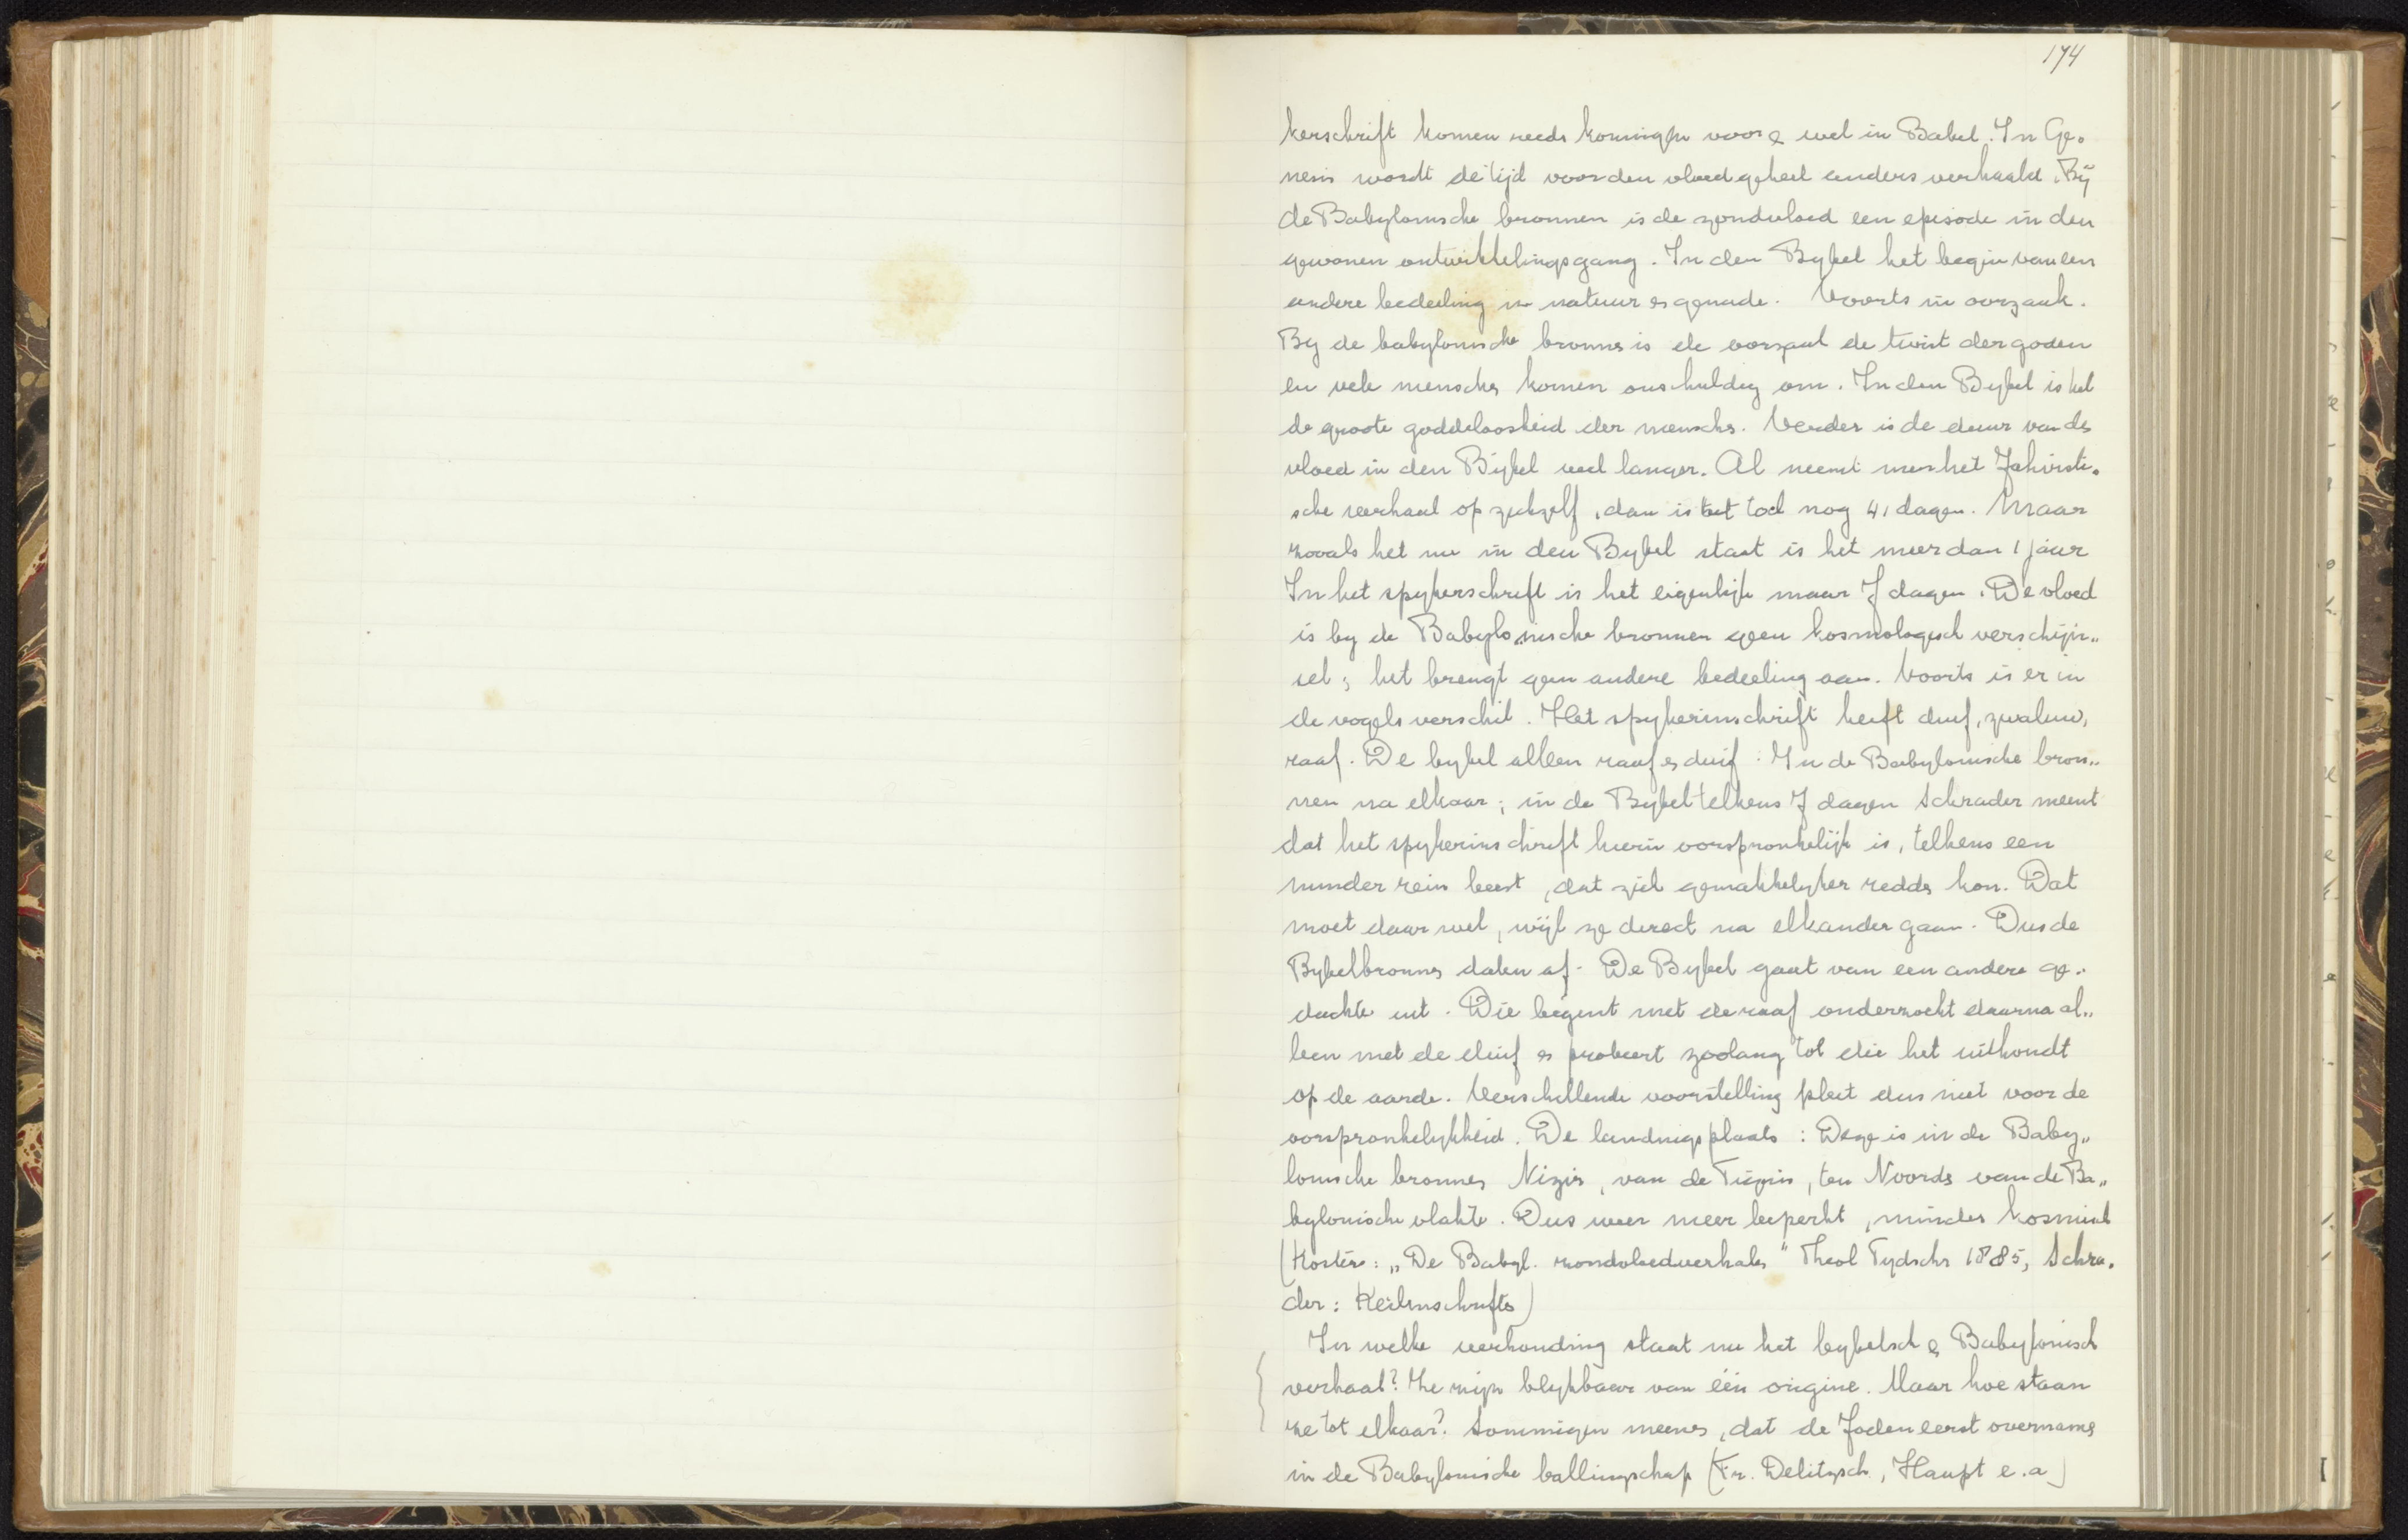 174
kerschrift komen reeds koningen voor & wel in Babel. In Ge-
nesis wordt de tijd voor den vloed geheel anders verhaald. Bij
de Babylonische bronnen is de zondvloed een episode in den
gewonen ontwikkelingsgang. In den Bybel het begin van een
andere bedeeling in natuur en genade. Voorts in oorzaak.
By de babylonische bronnen is de oorzaak de twist der goden
en vele menschen komen onschuldig om. In den Bybel is het
de groote goddeloosheid der menschen. Verder is de duur van den
vloed in den Bijbel veel langer. Al neemt men het Jahvisti-
sche verhaal op zichzelf, dan is het toch nog 41 dagen. Maar
zooals het nu in den Bybel staat is het meer dan 1 jaar
In het spykerschrift is het eigenlijk maar 7 dagen. De vloed
is by de Babylonische bronnen geen kosmologisch verschijn„
sel; het brengt geen andere bedeeling aan. Voorts is er in
de vogels verschil. Het spykerinschrift heeft duif, zwaluw,
raaf. De bybel alleen raaf en duif. In de Babylonische bron„
nen na elkaar; in de Bybel telkens 7 dagen Schrader meent
dat het spykerinschrift hierin oorspronkelijk is, telkens een
minder rein beest, dat zich gemakkelyker redden kon. Dat
moet daar wel, wijl ze direct na elkander gaan. Dus de
Bybelbronnen dalen af. De Bybel gaat van een andere ge„
dachte uit. Die begint met de raaf onderzoekt daarna al„
leen met de duif en probeert zoolang tot die het uithoudt
op de aarde. Verschillende voorstelling pleit dus niet voor de
oorspronkelykheid. De landingsplaats: Deze is in de Baby„
lonische bronnen Nizir, van de Tigris, ten Noorden van de Ba„
bylonische vlakte. Dus weer meer beperkt, minder kosmisch
(Kosters: „De Babyl. zondvloedverhalen" Theol Tydschr 1885, Schra-
der: Keilinschriften)
In welke verhouding staat nu het bybelsch & Babylonisch
verhaal? Ze zijn blykbaar van één origine. Maar hoe staan
ze tot elkaar? Sommigen meenen, dat de Joden eerst overnamen
in de Babylonische ballingschap (Fr. Delitzsch, Haupt e.a)